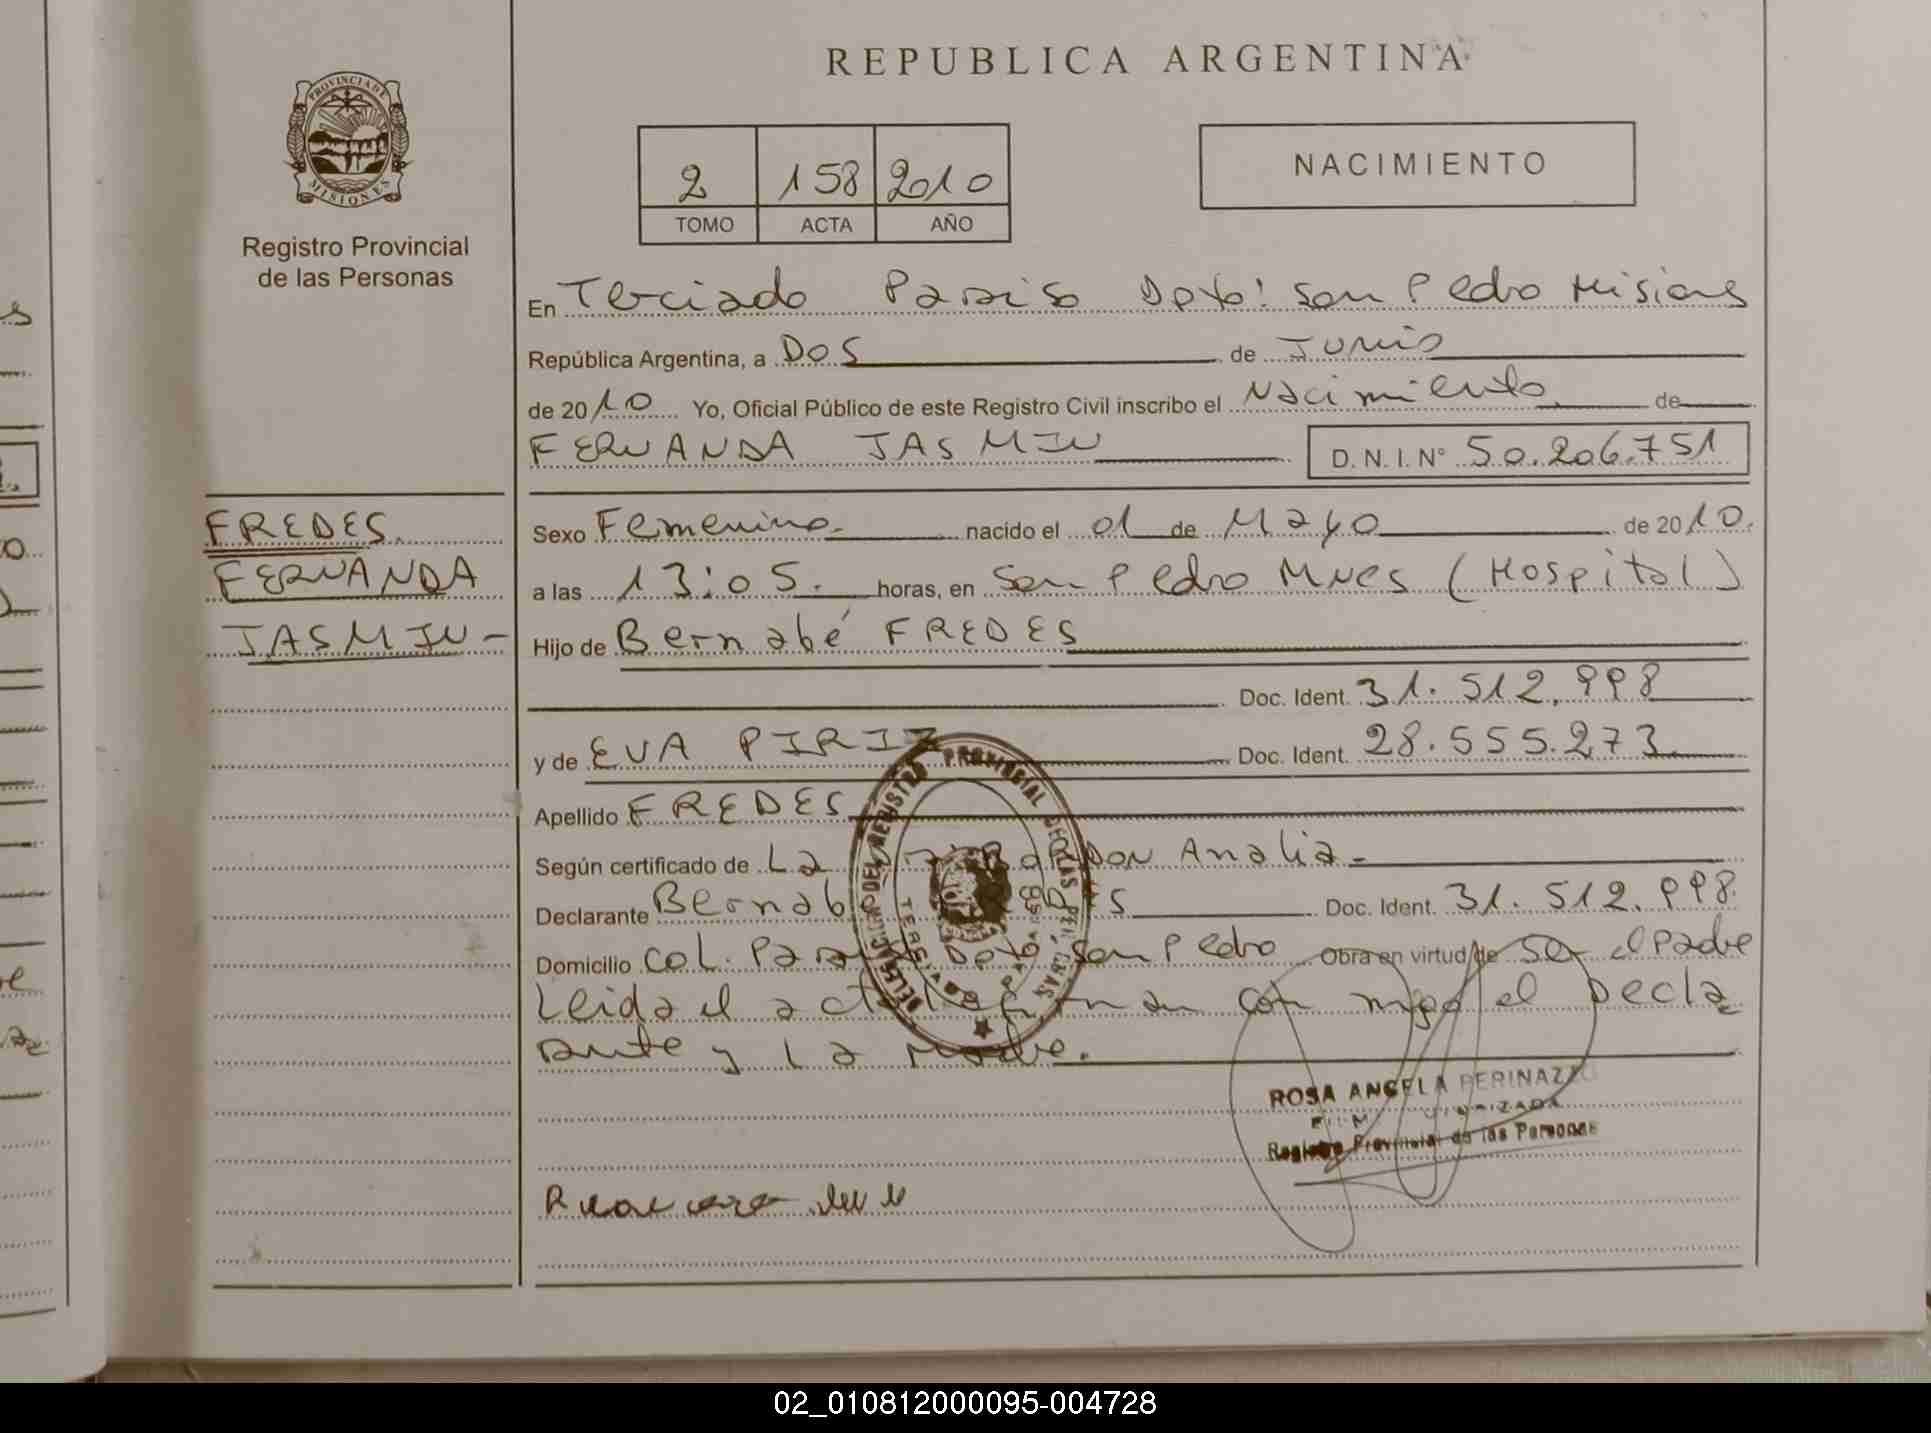 REPUBLICA ARGENTINA
PROVINCIA DE
MISIONES
Registro Provincial
de las Personas
2 158 2010
TOMO ACTA AÑO
NACIMIENTO
En Terciado Paraiso Dpto: San Pedro Misiones
República Argentina, a Dos de Junio
de 2010 Yo, Oficial Público de este Registro Civil inscribo el Nacimiento de
FERNANDA JASMIN D.N.I.N° 50.206.751
FREDES
FERNANDA
JASMIN-
Sexo Femenino- nacido el 01 de Mayo de 2010.
a las 13:05. horas, en San Pedro Mnes (Hospital)
Hijo de Bernabé FREDES
Doc. Ident. 31.512.998
y de EVA PIRIZ Doc. Ident. 28.555.273
Apellido FREDES
Según certificado de La Analia-
Declarante Bernabé Doc. Ident. 31.512.998.
Domicilio Col. Paraiso Dpto: San Pedro Obra en virtud de Ser el Padre
Leida el acta la firman con migo el Decla
rante y La Madre.
DELEGACION DEL REGISTRO PROVINCIAL DE LAS PERSONAS
ROSA ANGELA PERINAZZO
Registro Provincial de las Personas
02_010812000095-004728